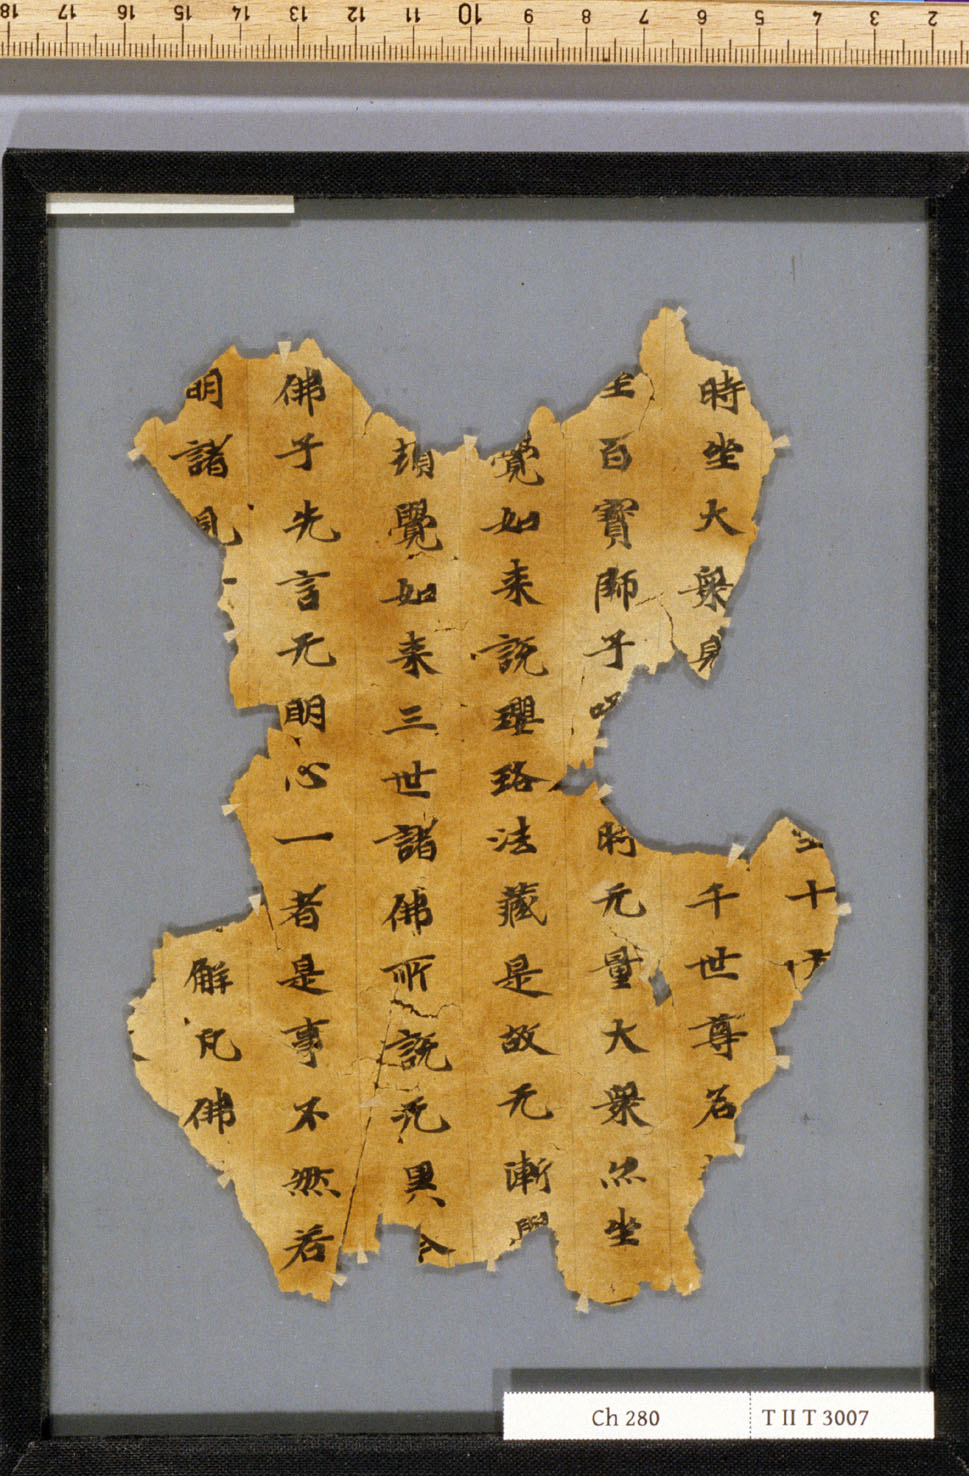 18 17 16 15 14 13 12 11 10 9 8 7 6 5 4 3 2
十
時坐大衆身 千世尊名
百寶師子吼 時无量大衆亦坐
覺如来説瓔珞法藏是故无漸
頓覺如来三世諸佛所説无異今
佛子先言无明心一者是事不然若
明諸見 解凡佛
Ch 280 T II T 3007